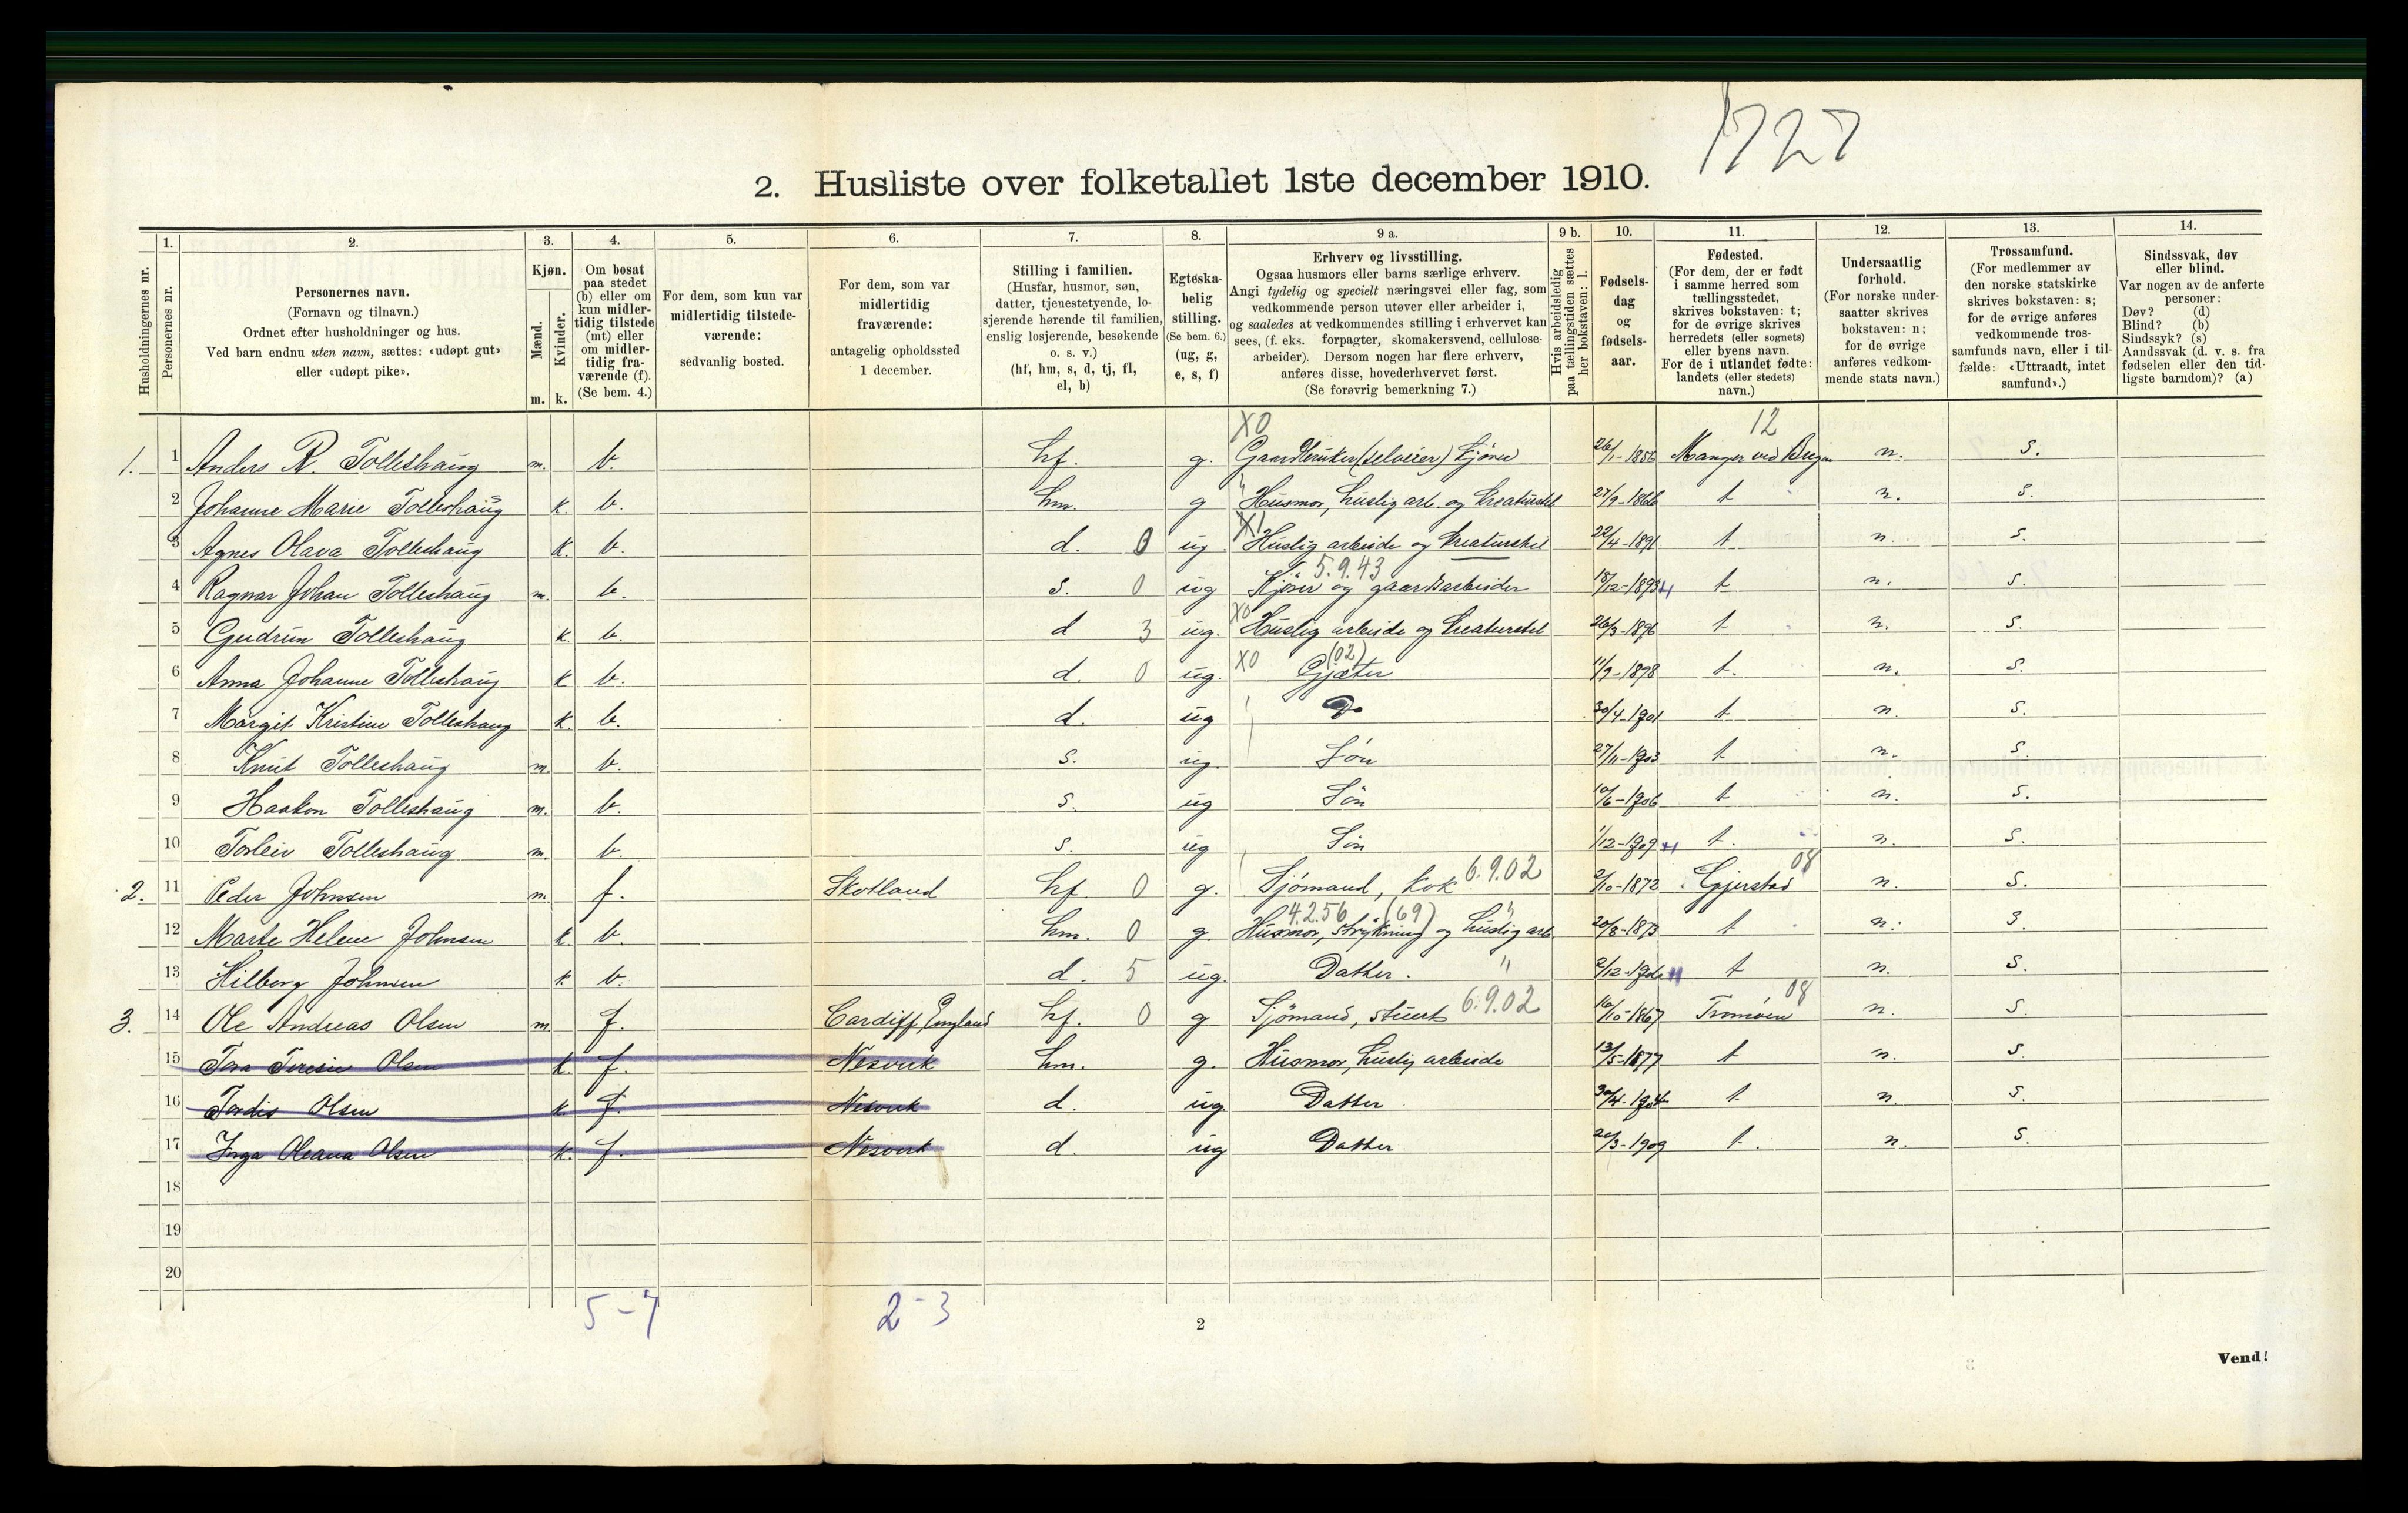 1727
2. Husliste over folketallet 1ste december 1910.
Husholdningernes nr.
1.
Personernes nr.
2.
Personernes navn.
(Fornavn og tilnavn.)
Ordnet efter husholdninger og hus.
Ved barn endnu uten navn, sættes: «udøpt gut»
eller «udøpt pike».
3.
Kjøn.
Mænd.
Kvinder.
m. k.
4.
Om bosat
paa stedet
(b) eller om
kun midler-
tidig tilstede
(mt) eller
om midler-
tidig fra-
værende (f).
(Se bem. 4.)
5.
For dem, som kun var
midlertidig tilstede-
værende:
sedvanlig bosted.
6.
For dem, som var
midlertidig
fraværende:
antagelig opholdssted
1 december.
7.
Stilling i familien.
(Husfar, husmor, søn,
datter, tjenestetyende, lo-
sjerende hørende til familien,
enslig losjerende, besøkende
o. s. v.)
(hf, hm, s, d, tj, fl,
el, b)
8.
Egteska-
belig
stilling.
(Se bem. 6.)
(ug, g,
e, s, f)
9 a.
Erhverv og livsstilling.
Ogsaa husmors eller barns særlige erhverv.
Angi tydelig og specielt næringsvei eller fag, som
vedkommende person utøver eller arbeider i,
og saaledes at vedkommendes stilling i erhvervet kan
sees, (f. eks. forpagter, skomakersvend, cellulose-
arbeider). Dersom nogen har flere erhverv,
anføres disse, hovederhvervet først.
(Se forøvrig bemerkning 7.)
9 b.
Hvis arbeidsledig
paa tællingstiden sættes
her bokstaven: l.
10.
Fødsels-
dag
og
fødsels-
aar.
11.
Fødested.
(For dem, der er født
i samme herred som
tællingsstedet,
skrives bokstaven: t;
for de øvrige skrives
herredets (eller sognets)
eller byens navn.
For de i utlandet fødte:
landets (eller stedets)
navn.)
12.
Undersaatlig
forhold.
(For norske under-
saatter skrives
bokstaven: n;
for de øvrige
anføres vedkom-
mende stats navn.)
13.
Trossamfund.
(For medlemmer av
den norske statskirke
skrives bokstaven: s;
for de øvrige anføres
vedkommende tros-
samfunds navn, eller i til-
fælde: «Uttraadt, intet
samfund».)
14.
Sindssvak, døv
eller blind.
Var nogen av de anførte
personer:
Døv? (d)
Blind? (b)
Sindssyk? (s)
Aandssvak (d. v. s. fra
fødselen eller den tid-
ligste barndom)? (a)
X0 12
1. 1 Anders R. Tolleshaug m. b. hf. g. Gaardbruker (selveier) kjører 26/1-1856 Manger ved Bergen n. s.
2 Johanne Marie Tolleshaug k. b. hm. g Husmor, huslig arb. og kreaturstel 27/9-1866 t n. s.
3 Agnes Olava Tolleshaug k. b. d. 0 ug. X1 Huslig arbeide og kreaturstel 22/4-1891 t n. s.
5.9.43
4 Ragnar Johan Tolleshaug m. b. s. 0 ug Kjører og gaardsarbeider 18/12-1893 t n. s.
5 Gudrun Tolleshaug k. b. d 3 ug. X0 Huslig arbeide og kreaturstel 26/3-1896 t n. s.
(02)
6 Anna Johanne Tolleshaug k b. d. 0 ug. X0 Gjæter 11/9-1898 t. n. s.
7 Margit Kristine Tolleshaug k. b. d. ug Do 30/4-1901 t n. s.
8 Knut Tolleshaug m. b. s. ug. Søn 27/11-1903 t n. s.
9 Haakon Tolleshaug m. b. s. ug Søn 10/6-1906 t n. s.
10 Torleiv Tolleshaug m. b. s. ug Søn 1/12-1909 t. n. s.
2. 11 Peder Johnsen m. f. Skotland hf. 0 g. Sjømand, kok 6.9.02 2/10-1872 Gjerstad 08 n. s.
4.2.56 (69)
12 Marte Helene Johnsen k. b. hm. 0 g. Husmor, strykning og huslig arb. 20/8-1873 t n. s.
13 Hilborg Johnsen k. b. d. 5 ug. Datter. " 2/12-190 t n. s.
3. 14 Ole Andreas Olsen m. f. Cardiff, England hf. 0 g Sjømand, stuert 6.9.02 16/10-1867 Tromøen 08 n. s.
15 Tora Teresie Olsen k. f. Nesvik hm. g. Husmor, huslig arbeide 13/5-1877 t n. s.
16 Tordis Olsen k f. Nesvik d. ug. Datter 30/4-1904 t n. s.
17 Inga Oleana Olsen k. f. Nesvik d. ug Datter 20/3-1909 t. n. s.
18
19
20
5-7 2-3
2
Vend!